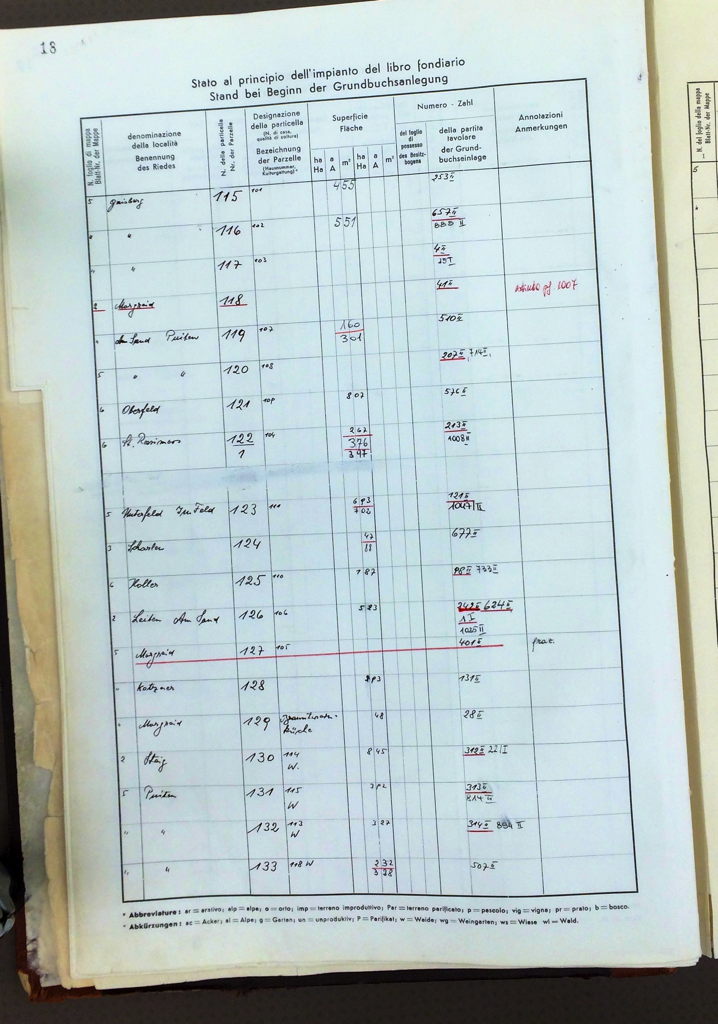 18
Stato al principio dell'impianto del libro fondiario
Stand bei Beginn der Grundbuchsanlegung
N. foglio di mappa
Blatt-Nr. der Mappe
denominazione della località
Benennung des Riedes
N. della particella
Nr. der Parzelle
Designazione della particella
(N. di casa, qualità di coltura)
Bezeichnung der Parzelle
(Hausnummer, Kulturgattung)*
Superficie
Fläche
ha a m² ha a m²
Ha A Ha A
Numero - Zahl
del foglio di possesso
des Besitzbogens
della partita tavolare
der Grundbuchseinlage
Annotazioni
Anmerkungen
5 115 101 455 253 II
" " 116 102 551 657 II
888 II
" " 117 103 4 II
2 Margreid 118 41 II 1007
" Am Sand Puiten 119 107 160 510 II
301
5 " " 120 108 207 II 714 II
6 Oberfeld 121 109 8 07 576 II
6 122 104 2 67 213 II
1 376 1008 II
3 97
5 Unterfeld Im Feld 123 6 93 121 II
7 02
3 124 47 677 II
6 Koller 125 110 1 87 98 II 733 II
2 Leiten Am Sand 126 106 5 83 242 II 624 II
1 I
1025 II
5 Margreid 127 105 401 II
" 128 131 II
" Margreid 129 48 28 II
2 Steig 130 114 8 45 312 II 221 I
W.
5 Puiten 131 115 3 92 313 II
W 814 II
" " 132 113 3 27 314 II 894 II
W
" " 133 118 W 2 32 507 II
3 28
* Abbreviature: ar = arativo; alp = alpe; o = orto; imp = terreno improduttivo; Par = terreno parificato; p = pascolo; vig = vigna; pr = prato; b = bosco.
* Abkürzungen: ac = Acker; al = Alpe; g = Garten; un = unproduktiv; P = Parifikat; w = Weide; wg = Weingarten; ws = Wiese wl = Wald.
N. del foglio della mappa
Blatt-Nr. der Mappe
5